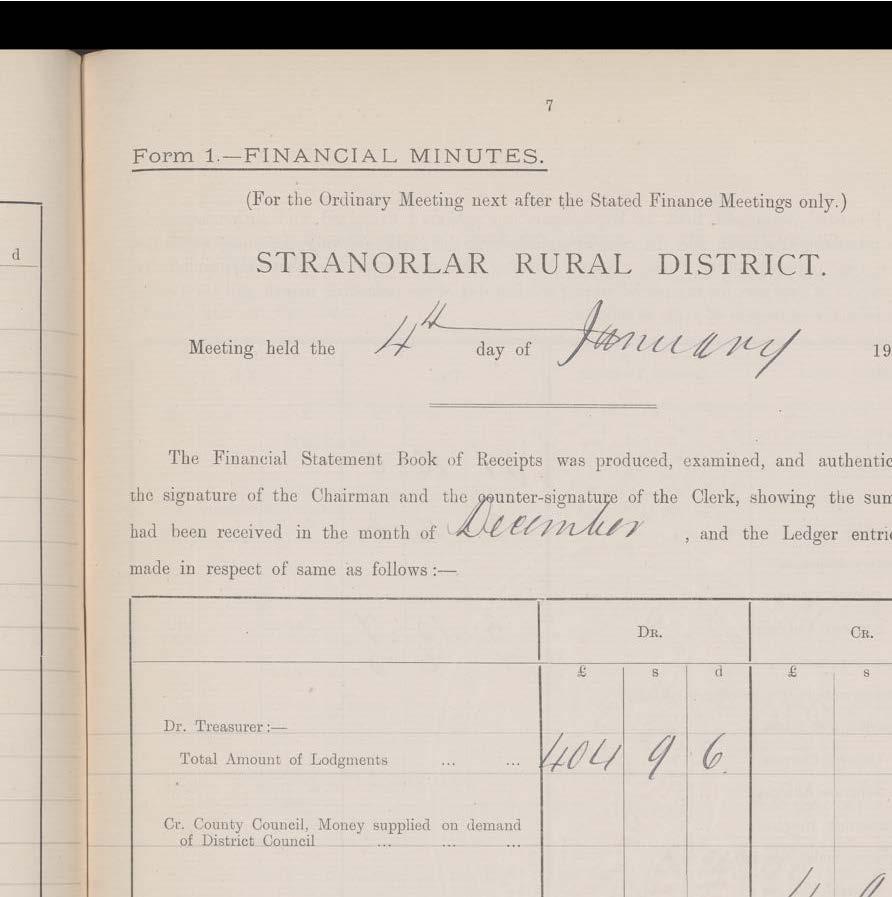 7
Form 1.—FINANCIAL MINUTES.
(For the Ordinary Meeting next after the Stated Finance Meetings only.)
STRANORLAR RURAL DISTRICT.
Meeting held the 4th day of January 19
The Financial Statement Book of Receipts was produced, examined, and authentic
the signature of the Chairman and the counter-signature of the Clerk, showing the sum
had been received in the month of December , and the Ledger entrie
made in respect of same as follows :—
DR. CR.
d £ s d £ s
Dr. Treasurer :—
Total Amount of Lodgments ... ... 404 9 6
Cr. County Council, Money supplied on demand
of District Council ... ... ...